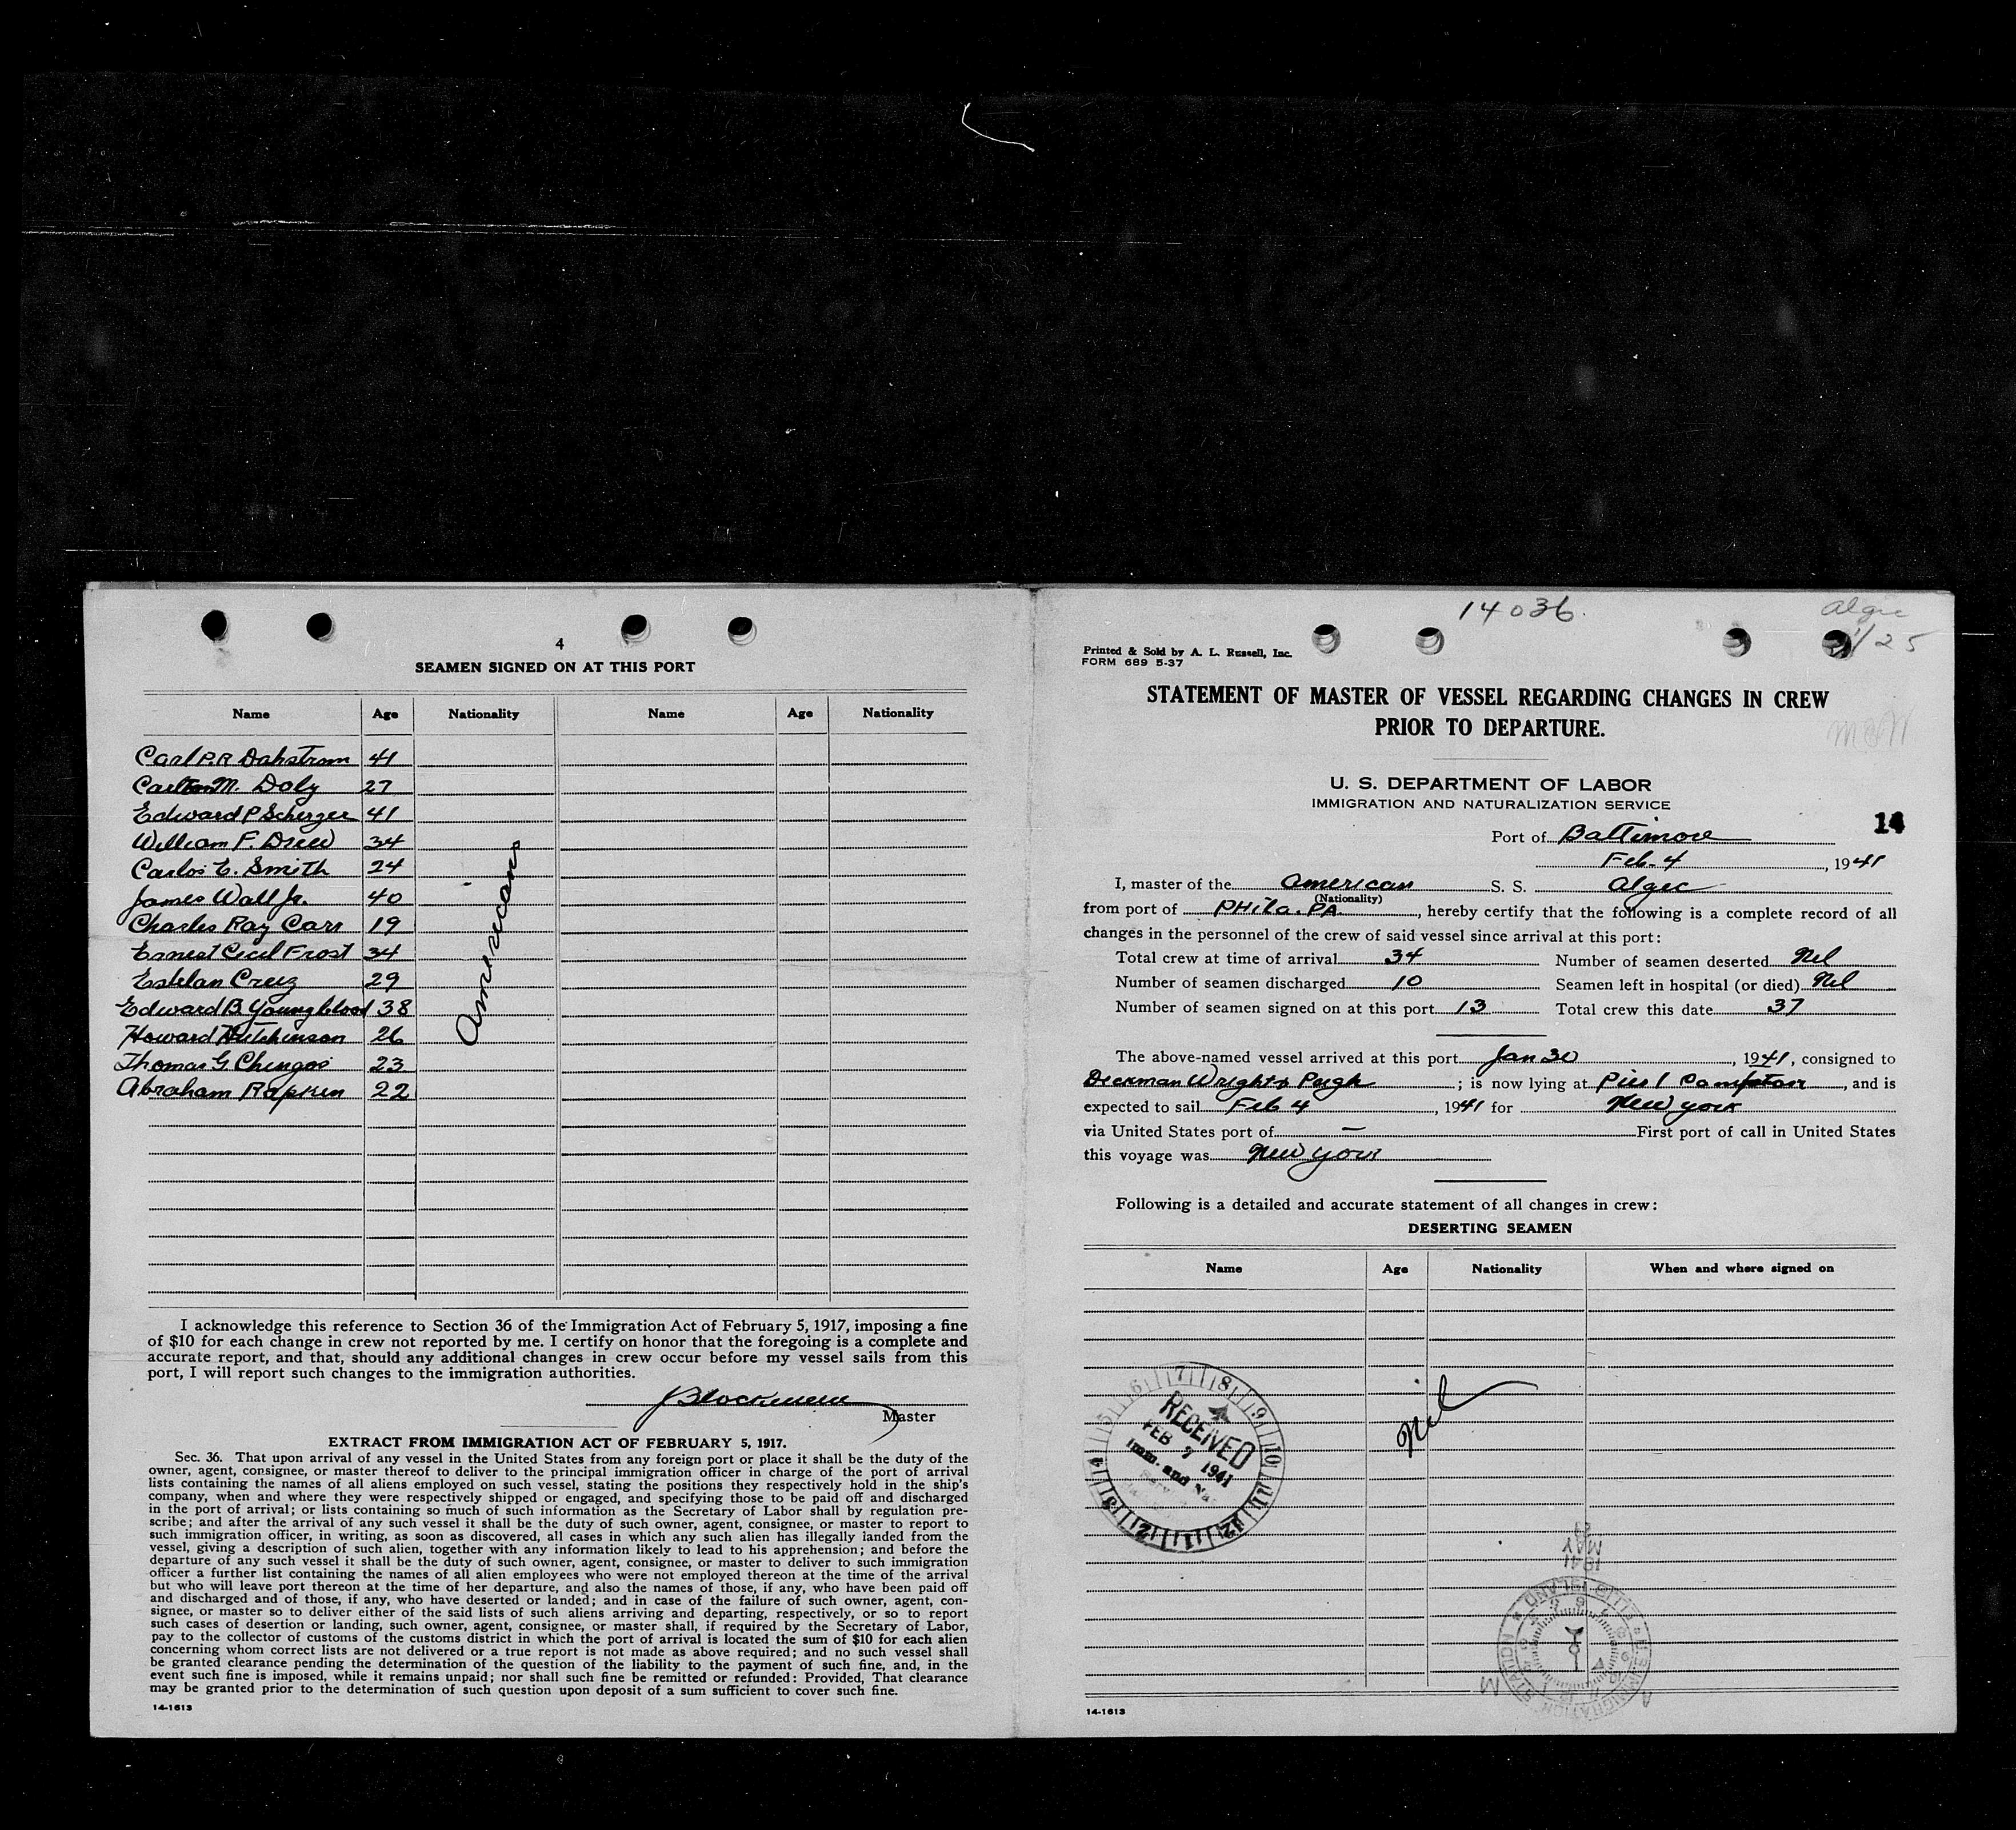 4
SEAMEN SIGNED ON AT THIS PORT
Name Age Nationality Name Age Nationality
Carl P.R Dahstrom 41
Carlton M. Doly 27
Edward P Scherzer 41
William F. Drew 34
Carlos E. Smith 24
James Wall Jr. 40
Charles Ray Carr 19
Ernest Cecil Frost 34
Estelan Cruz 29
Edward B. Youngblood 38
Howard Hutchinson 26
Thomas G. Chingos 23
Abraham Rapkin 22
Americans
I acknowledge this reference to Section 36 of the Immigration Act of February 5, 1917, imposing a fine
of $10 for each change in crew not reported by me. I certify on honor that the foregoing is a complete and
accurate report, and that, should any additional changes in crew occur before my vessel sails from this
port, I will report such changes to the immigration authorities.
Master
EXTRACT FROM IMMIGRATION ACT OF FEBRUARY 5, 1917.
Sec. 36. That upon arrival of any vessel in the United States from any foreign port or place it shall be the duty of the
owner, agent, consignee, or master thereof to deliver to the principal immigration officer in charge of the port of arrival
lists containing the names of all aliens employed on such vessel, stating the positions they respectively hold in the ship's
company, when and where they were respectively shipped or engaged, and specifying those to be paid off and discharged
in the port of arrival; or lists containing so much of such information as the Secretary of Labor shall by regulation pre-
scribe; and after the arrival of any such vessel it shall be the duty of such owner, agent, consignee, or master to report to
such immigration officer, in writing, as soon as discovered, all cases in which any such alien has illegally landed from the
vessel, giving a description of such alien, together with any information likely to lead to his apprehension; and before the
departure of any such vessel it shall be the duty of such owner, agent, consignee, or master to deliver to such immigration
officer a further list containing the names of all alien employees who were not employed thereon at the time of the arrival
but who will leave port thereon at the time of her departure, and also the names of those, if any, who have been paid off
and discharged and of those, if any, who have deserted or landed; and in case of the failure of such owner, agent, con-
signee, or master so to deliver either of the said lists of such aliens arriving and departing, respectively, or so to report
such cases of desertion or landing, such owner, agent, consignee, or master shall, if required by the Secretary of Labor,
pay to the collector of customs of the customs district in which the port of arrival is located the sum of $10 for each alien
concerning whom correct lists are not delivered or a true report is not made as above required; and no such vessel shall
be granted clearance pending the determination of the question of the liability to the payment of such fine, and, in the
event such fine is imposed, while it remains unpaid; nor shall such fine be remitted or refunded: Provided, That clearance
may be granted prior to the determination of such question upon deposit of a sum sufficient to cover such fine.
14-1613
14036
Algic
1/25
Printed & Sold by A. L. Russell, Inc.
FORM 689 5-37
STATEMENT OF MASTER OF VESSEL REGARDING CHANGES IN CREW
PRIOR TO DEPARTURE.
U. S. DEPARTMENT OF LABOR
IMMIGRATION AND NATURALIZATION SERVICE
14
Port of Baltimore
Feb. 4, 1941
I, master of the American S. S. Algic
(Nationality)
from port of Phila. PA., hereby certify that the following is a complete record of all
changes in the personnel of the crew of said vessel since arrival at this port:
Total crew at time of arrival 34 Number of seamen deserted Nil
Number of seamen discharged 10 Seamen left in hospital (or died) Nil
Number of seamen signed on at this port 13 Total crew this date 37
The above-named vessel arrived at this port Jan 30, 1941, consigned to
Dickman Wright & Pugh; is now lying at Pier 1, and is
expected to sail Feb 4, 1941 for New York
via United States port of — First port of call in United States
this voyage was New York
Following is a detailed and accurate statement of all changes in crew:
DESERTING SEAMEN
Name Age Nationality When and where signed on
Nil
RECEIVED
FEB 7 1941
Imm. and Na
1941
MAY
U.S. IMMIGRATION STATION ELLIS ISLAND
14-1613